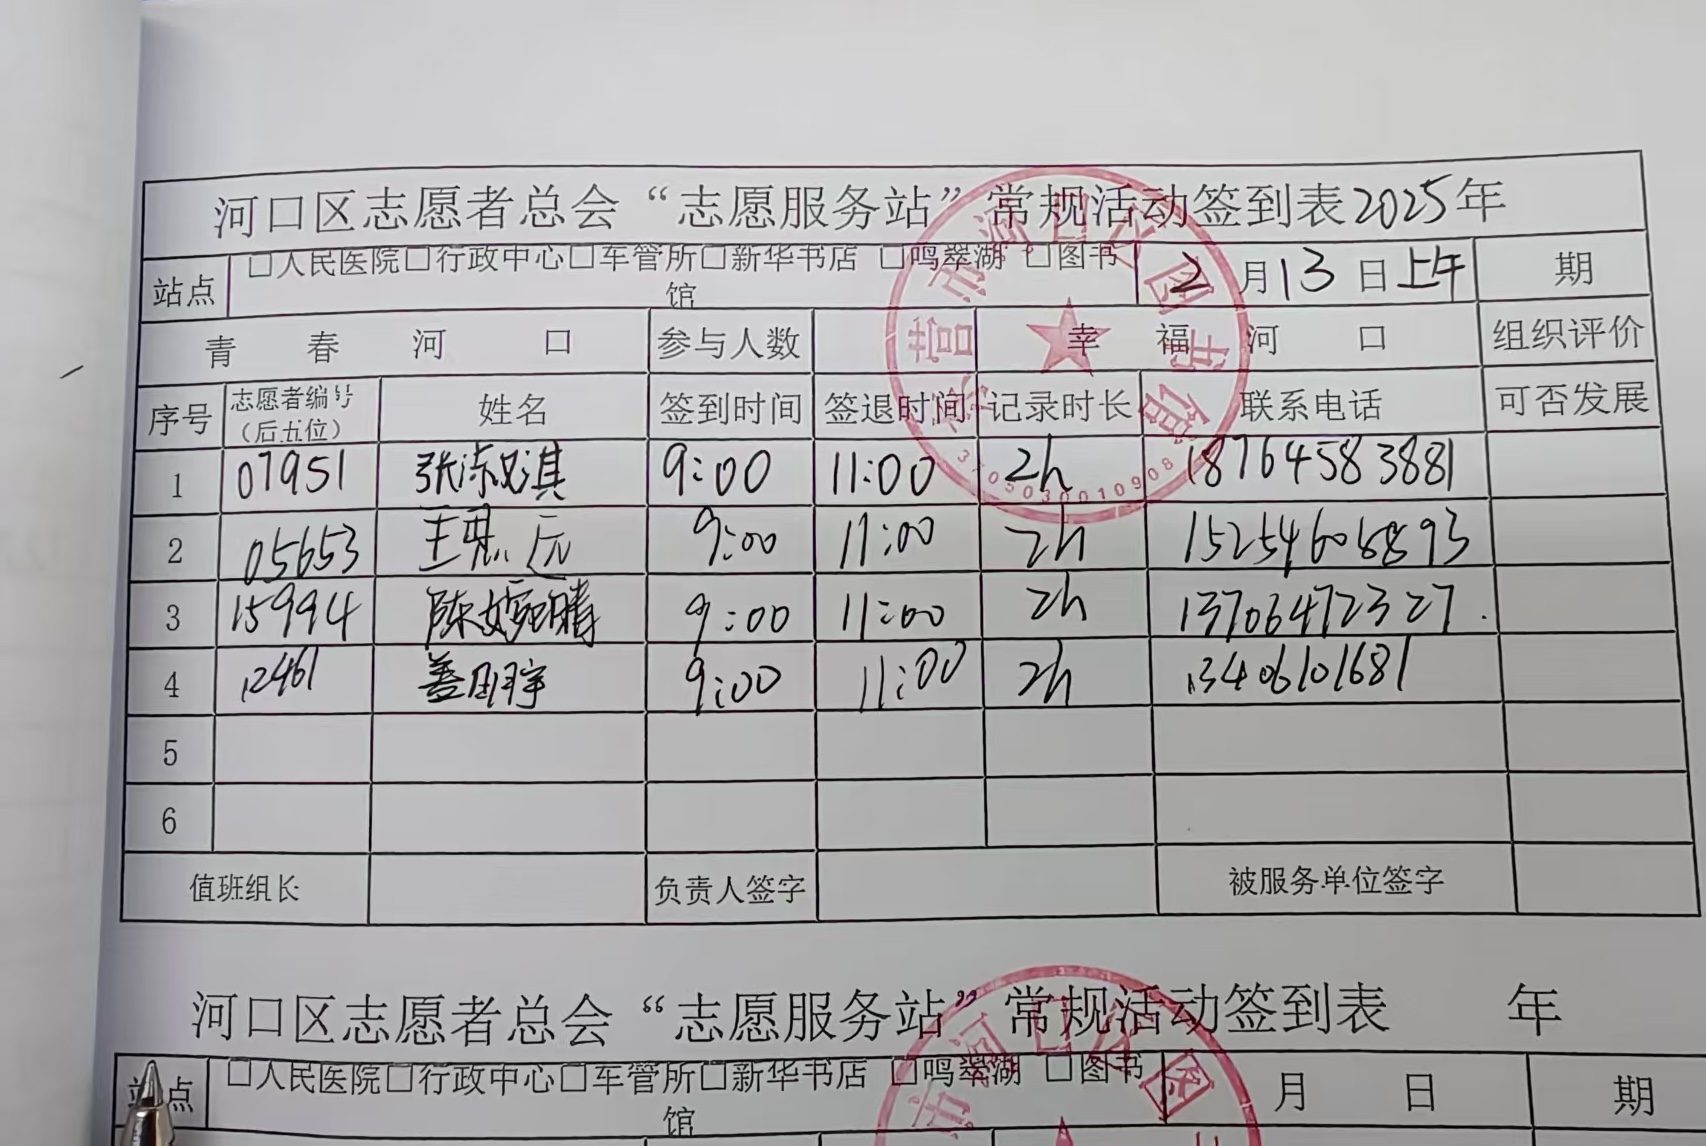 河口区志愿者总会“志愿服务站”常规活动签到表2025年
站点 □人民医院□行政中心□车管所□新华书店 □鸣翠湖 □图书馆 2月13日上午 期
青春河口 参与人数 幸福河口 组织评价
序号 志愿者编号（后五位） 姓名 签到时间 签退时间 记录时长 联系电话 可否发展
1 07951 张淇 9:00 11:00 2h 18764583881
2 05653 王 元 9:00 11:00 2h
3 15994 陈婉腾 9:00 11:00 2h 13706472327.
4 12461 宇 9:00 11:00 2h 13406101681
5
6
值班组长 负责人签字 被服务单位签字
东营市河口区图书馆
3705030010908
河口区志愿者总会“志愿服务站”常规活动签到表 年
站点 □人民医院□行政中心□车管所□新华书店 □鸣翠湖 □图书馆 月 日 期
市河口区图